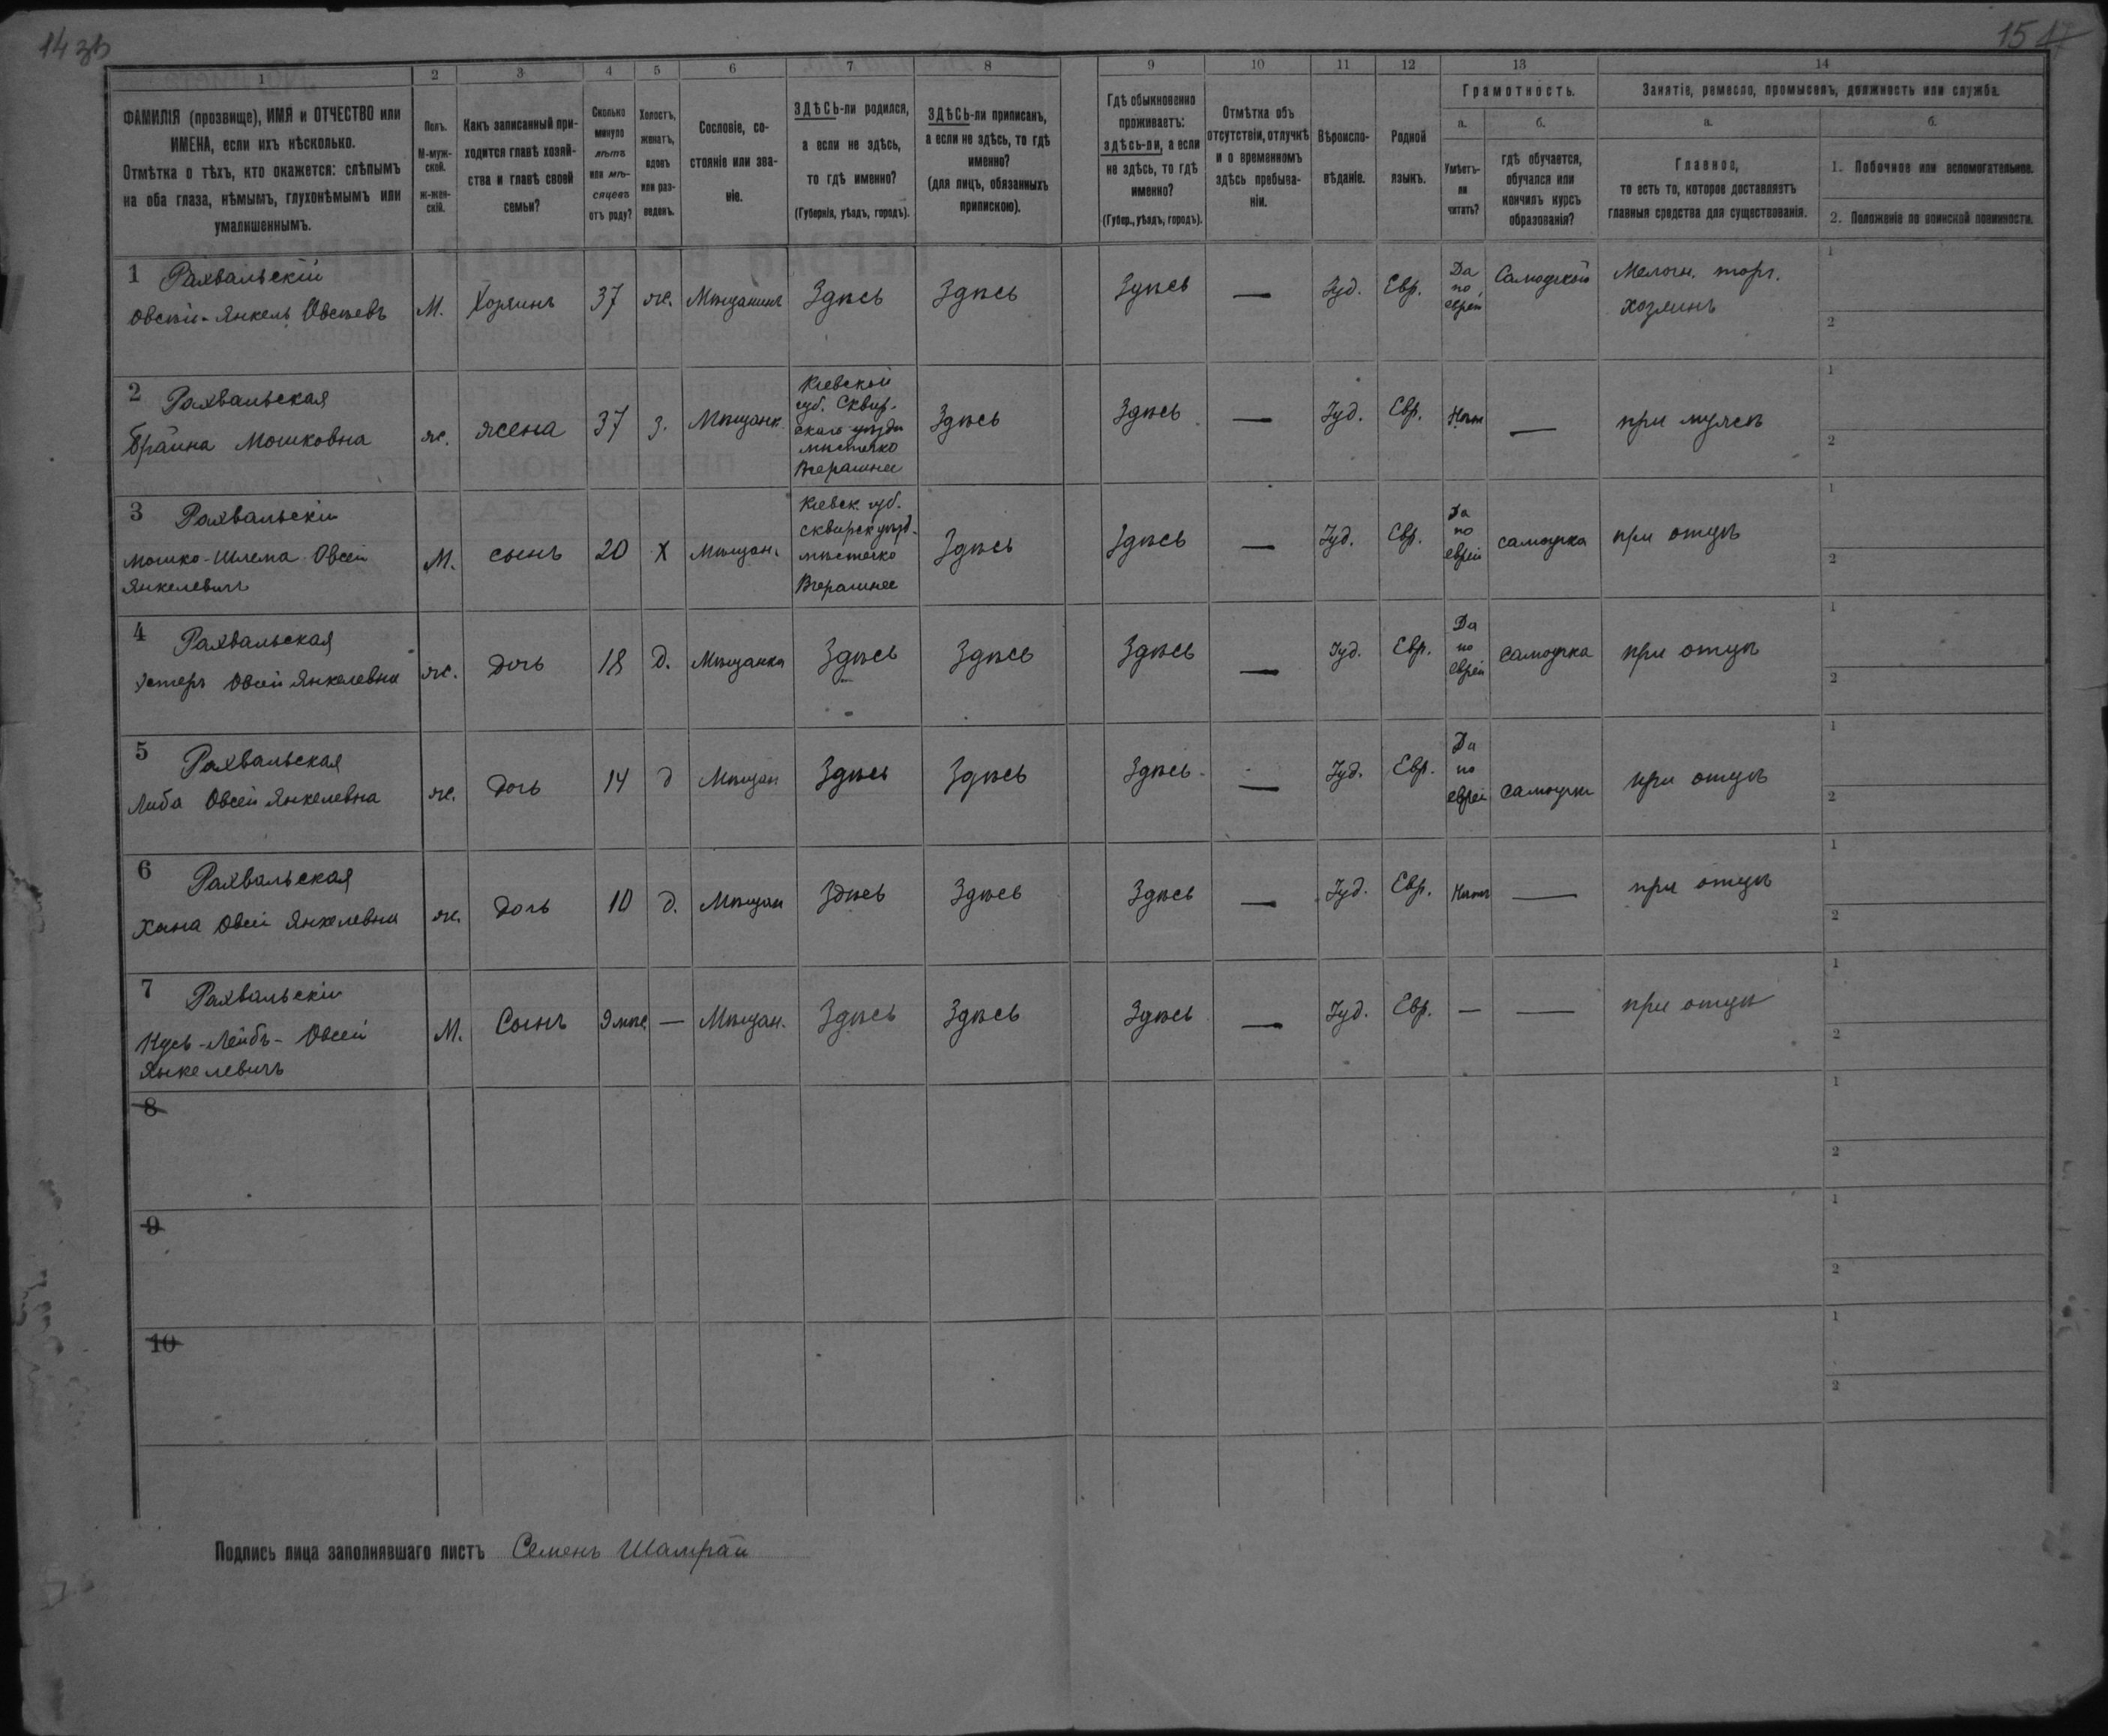 14 зв
15 17
1
2
3
4
5
6
7
8
9
10
11
12
13
14
ФАМИЛІЯ (прозвище), ИМЯ и ОТЧЕСТВО или
ИМЕНА, если ихъ нѣсколько.
Отмѣтка о тѣхъ, кто окажется: слѣпымъ
на оба глаза, нѣмымъ, глухонѣмымъ или
умалишеннымъ.
Полъ.
М-муж-
ской.
ж-жен-
скій.
Какъ записанный при-
ходится главѣ хозяй-
ства и главѣ своей
семьи?
Сколько
минуло
лѣтъ
или мѣ-
сяцевъ
отъ роду?
Холостъ,
женатъ,
вдовъ
или раз-
веденъ.
Сословіе, со-
стояніе или зва-
ніе.
ЗДѢСЬ-ли родился,
а если не здѣсь,
то гдѣ именно?
(Губернія, уѣздъ, городъ).
ЗДѢСЬ-ли приписанъ,
а если не здѣсь, то гдѣ
именно?
(для лицъ, обязанныхъ
припискою).
Гдѣ обыкновенно
проживаетъ:
здѣсь-ли, а если
не здѣсь, то гдѣ
именно?
(Губер., уѣздъ, городъ).
Отмѣтка объ
отсутствіи, отлучкѣ
и о временномъ
здѣсь пребыва-
ніи.
Вѣроиспо-
вѣданіе.
Родной
языкъ.
Грамотность.
а.
Умѣетъ-
ли
читать?
б.
гдѣ обучается,
обучался или
кончилъ курсъ
образованія?
Занятіе, ремесло, промыселъ, должность или служба.
а.
Главное,
то есть то, которое доставляетъ
главныя средства для существованія.
б.
1. Побочное или вспомогательное.
2. Положеніе по воинской повинности.
1 Рахвальскій
Овсій-Янкель Овсѣевъ
М.
Хозяинъ
37
же.
Мѣщанинъ
Здѣсь
Здѣсь
Здѣсь
—
Іуд.
Евр.
Да
по
еврей
Мелочн. торг.
хозяинъ
1
2
2 Рахвальская
Браина Мошковна
же.
жена
37
з.
Мѣщанк.
Кіевской
губ. Сквир-
скаго уѣзда
мѣстечко
Вчерашнее
Здѣсь
Здѣсь
—
Іуд.
Евр.
Нѣтъ
—
при мужѣ
1
2
3 Рахвальскій
Мошко-Шлема Овсей
Янкелевичъ
М.
сынъ
20
Х
Мѣщан.
Кіевск. губ.
сквирск уѣзд.
мѣстечко
Вчерашнее
Здѣсь
Здѣсь
—
Іуд.
Евр.
Да
по
еврей
самоучка
при отцѣ
1
2
4 Рахвальская
Эстеръ Овсей Янкелевна
же.
дочь
18
Д.
Мѣщанка
Здѣсь
Здѣсь
Здѣсь
—
Іуд.
Евр.
Да
по
еврей
самоучка
при отцѣ
1
2
5 Рахвальская
Либа Овсей Янкелевна
же.
дочь
14
д
Мѣщан
Здѣсь
Здѣсь
Здѣсь
—
Іуд.
Евр.
Да
по
еврей
самоучка
при отцѣ
1
2
6 Рахвальская
Хана Овсей Янкелевна
же.
дочь
10
д.
Мѣщан
Здѣсь
Здѣсь
Здѣсь
—
Іуд.
Евр.
Нѣтъ
—
при отцѣ
1
2
7 Рахвальскій
Лейбъ-Овсей
Янкелевичъ
М.
Сынъ
9 мѣс
—
Мѣщан.
Здѣсь
Здѣсь
Здѣсь
—
Іуд.
Евр.
—
—
при отцѣ
1
2
8
1
2
9
1
2
10
1
2
Подпись лица заполнявшаго листъ Семенъ Шамрай